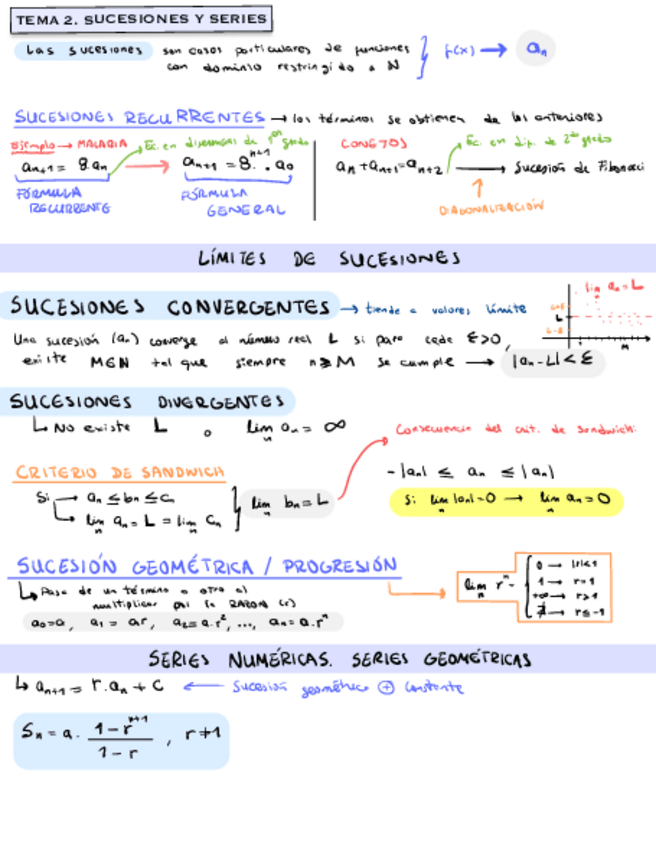 TEMA 2. SUCESIONES Y SERIES
Las sucesiones son casos particulares de funciones con dominio restringido a N } f(x) → aₙ
SUCESIONES RECURRENTES → los términos se obtienen de los anteriores
Ejemplo → MALARIA Ec. en diferencias de 1er grado CONEJOS Ec. en dif. de 2do grado
aₙ₊₁ = 8.aₙ → aₙ₊₁ = 8ⁿ⁺¹.a₀ aₙ + aₙ₊₁ = aₙ₊₂ → Sucesión de Fibonacci
FÓRMULA RECURRENTE FÓRMULA GENERAL DIAGONALIZACIÓN
LÍMITES DE SUCESIONES
SUCESIONES CONVERGENTES → tiende a valores límite
lim aₙ = L
L+ε
L
L-ε
M
Una sucesión (aₙ) converge al número real L si para cada ε>0,
existe M∈N tal que siempre n≥M se cumple → |aₙ-L| < ε
SUCESIONES DIVERGENTES
↳ No existe L o lim aₙ = ∞
n
Consecuencia del crit. de Sandwich:
CRITERIO DE SANDWICH
-|aₙ| ≤ aₙ ≤ |aₙ|
Si → aₙ ≤ bₙ ≤ cₙ
↳ lim aₙ = L = lim cₙ } lim bₙ = L
Si lim |aₙ| = 0 → lim aₙ = 0
SUCESIÓN GEOMÉTRICA / PROGRESIÓN
↳ Pasa de un término a otro al
multiplicar por la RAZÓN (r)
a₀=a, a₁ = ar, a₂=a.r², ..., aₙ=a.rⁿ
lim rⁿ =
0 → |r|<1
1 → r=1
+∞ → r>1
∄ → r≤-1
SERIES NUMÉRICAS. SERIES GEOMÉTRICAS
↳ aₙ₊₁ = r.aₙ + c ← Sucesión geométrica ⊕ constante
Sₙ = a. (1-rⁿ⁺¹)/(1-r) , r≠1